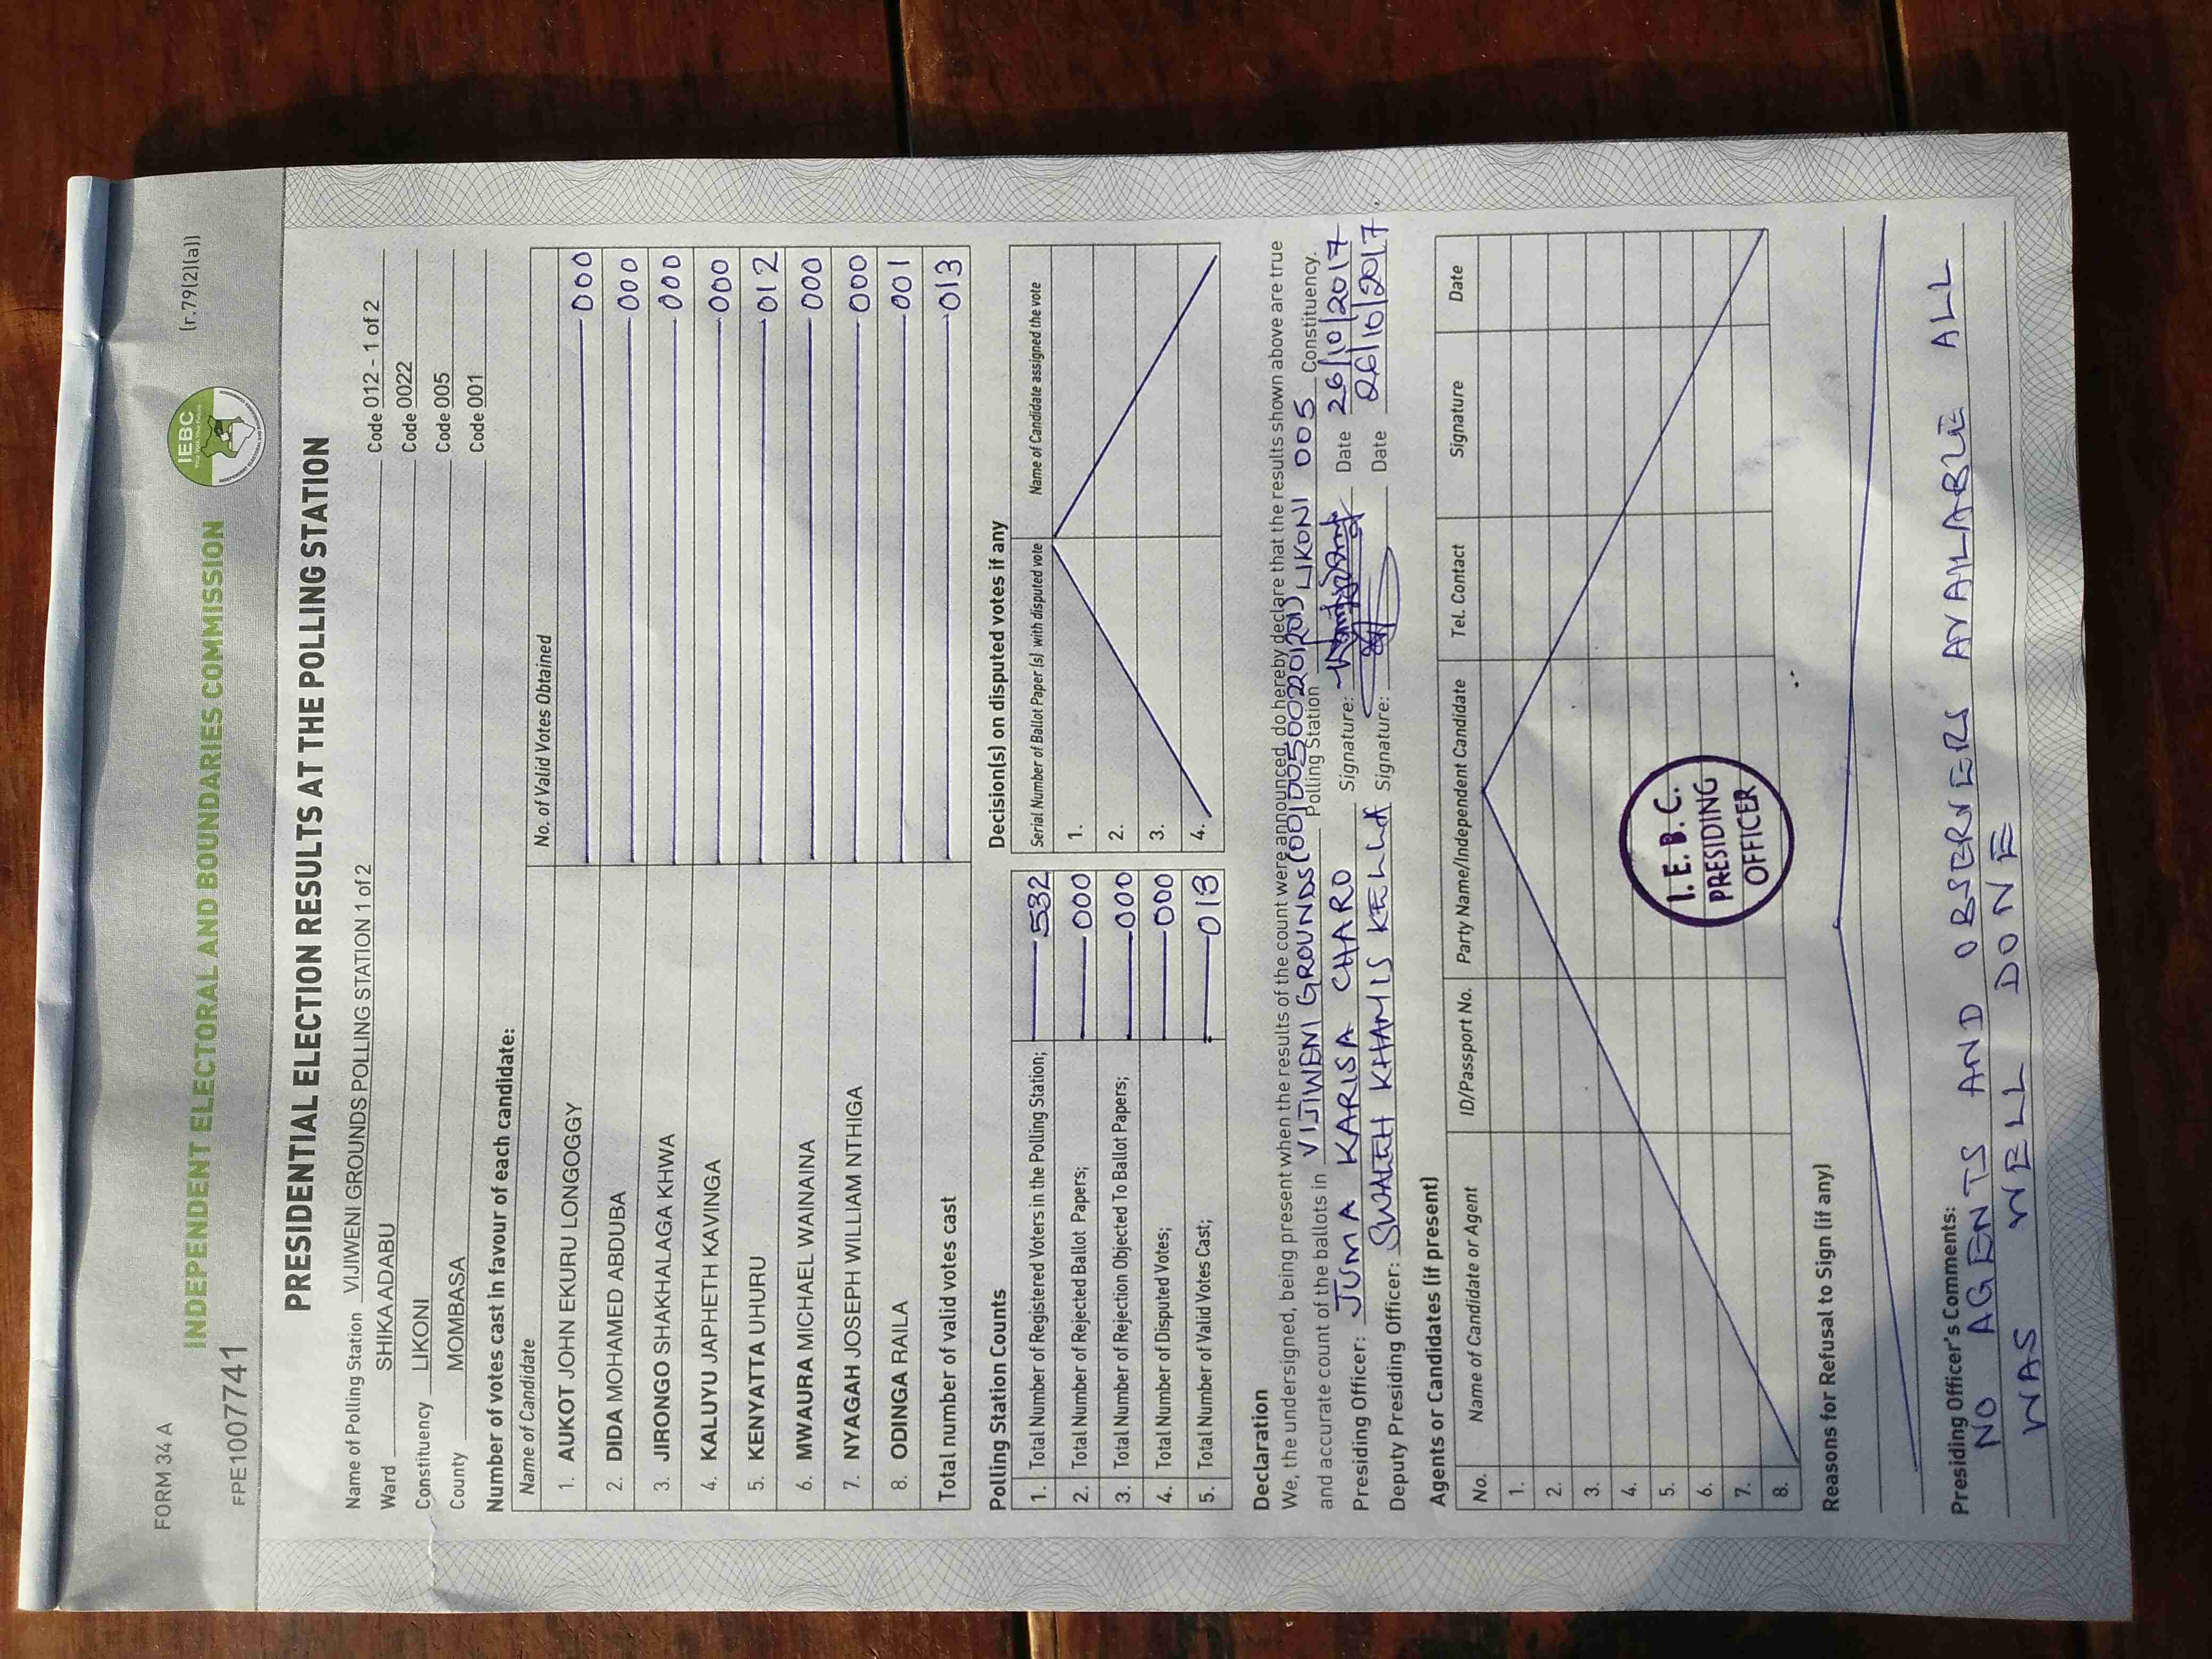 FORM 34 A
(r.79(2)(a))
IEBC
INDEPENDENT ELECTORAL AND BOUNDARIES COMMISSION
FPE1007741
PRESIDENTIAL ELECTION RESULTS AT THE POLLING STATION
Name of Polling Station VIJIWENI GROUNDS POLLING STATION 1 of 2 Code 012 - 1 of 2
Ward SHIKA ADABU Code 0022
Constituency LIKONI Code 005
County MOMBASA Code 001
Number of votes cast in favour of each candidate:
Name of Candidate No. of Valid Votes Obtained
1. AUKOT JOHN EKURU LONGOGGY 000
2. DIDA MOHAMED ABDUBA 000
3. JIRONGO SHAKHALAGA KHWA 000
4. KALUYU JAPHETH KAVINGA 000
5. KENYATTA UHURU 012
6. MWAURA MICHAEL WAINAINA 000
7. NYAGAH JOSEPH WILLIAM NTHIGA 000
8. ODINGA RAILA 001
Total number of valid votes cast 013
Polling Station Counts
1. Total Number of Registered Voters in the Polling Station; 532
2. Total Number of Rejected Ballot Papers; 000
3. Total Number of Rejection Objected To Ballot Papers; 000
4. Total Number of Disputed Votes; 000
5. Total Number of Valid Votes Cast; 013
Decision(s) on disputed votes if any
Serial Number of Ballot Paper (s) with disputed vote Name of Candidate assigned the vote
1.
2.
3.
4.
Declaration
We, the undersigned, being present when the results of the count were announced, do hereby declare that the results shown above are true
and accurate count of the ballots in VIJIWENI GROUNDS Polling Station LIKONI 005 Constituency.
Presiding Officer: JUMA KARISA CHARO Signature: Date 26/10/2017
Deputy Presiding Officer: SWALEH KHAMIS KELLA Signature: Date 26/10/2017.
Agents or Candidates (if present)
No. Name of Candidate or Agent ID/Passport No. Party Name/Independent Candidate Tel. Contact Signature Date
1.
2.
3.
4.
5.
6.
7.
8.
I.E.B.C.
PRESIDING
OFFICER
Reasons for Refusal to Sign (if any)
Presiding Officer's Comments:
NO AGENTS AND OBSERVERS AVAILABLE ALL
WAS WELL DONE